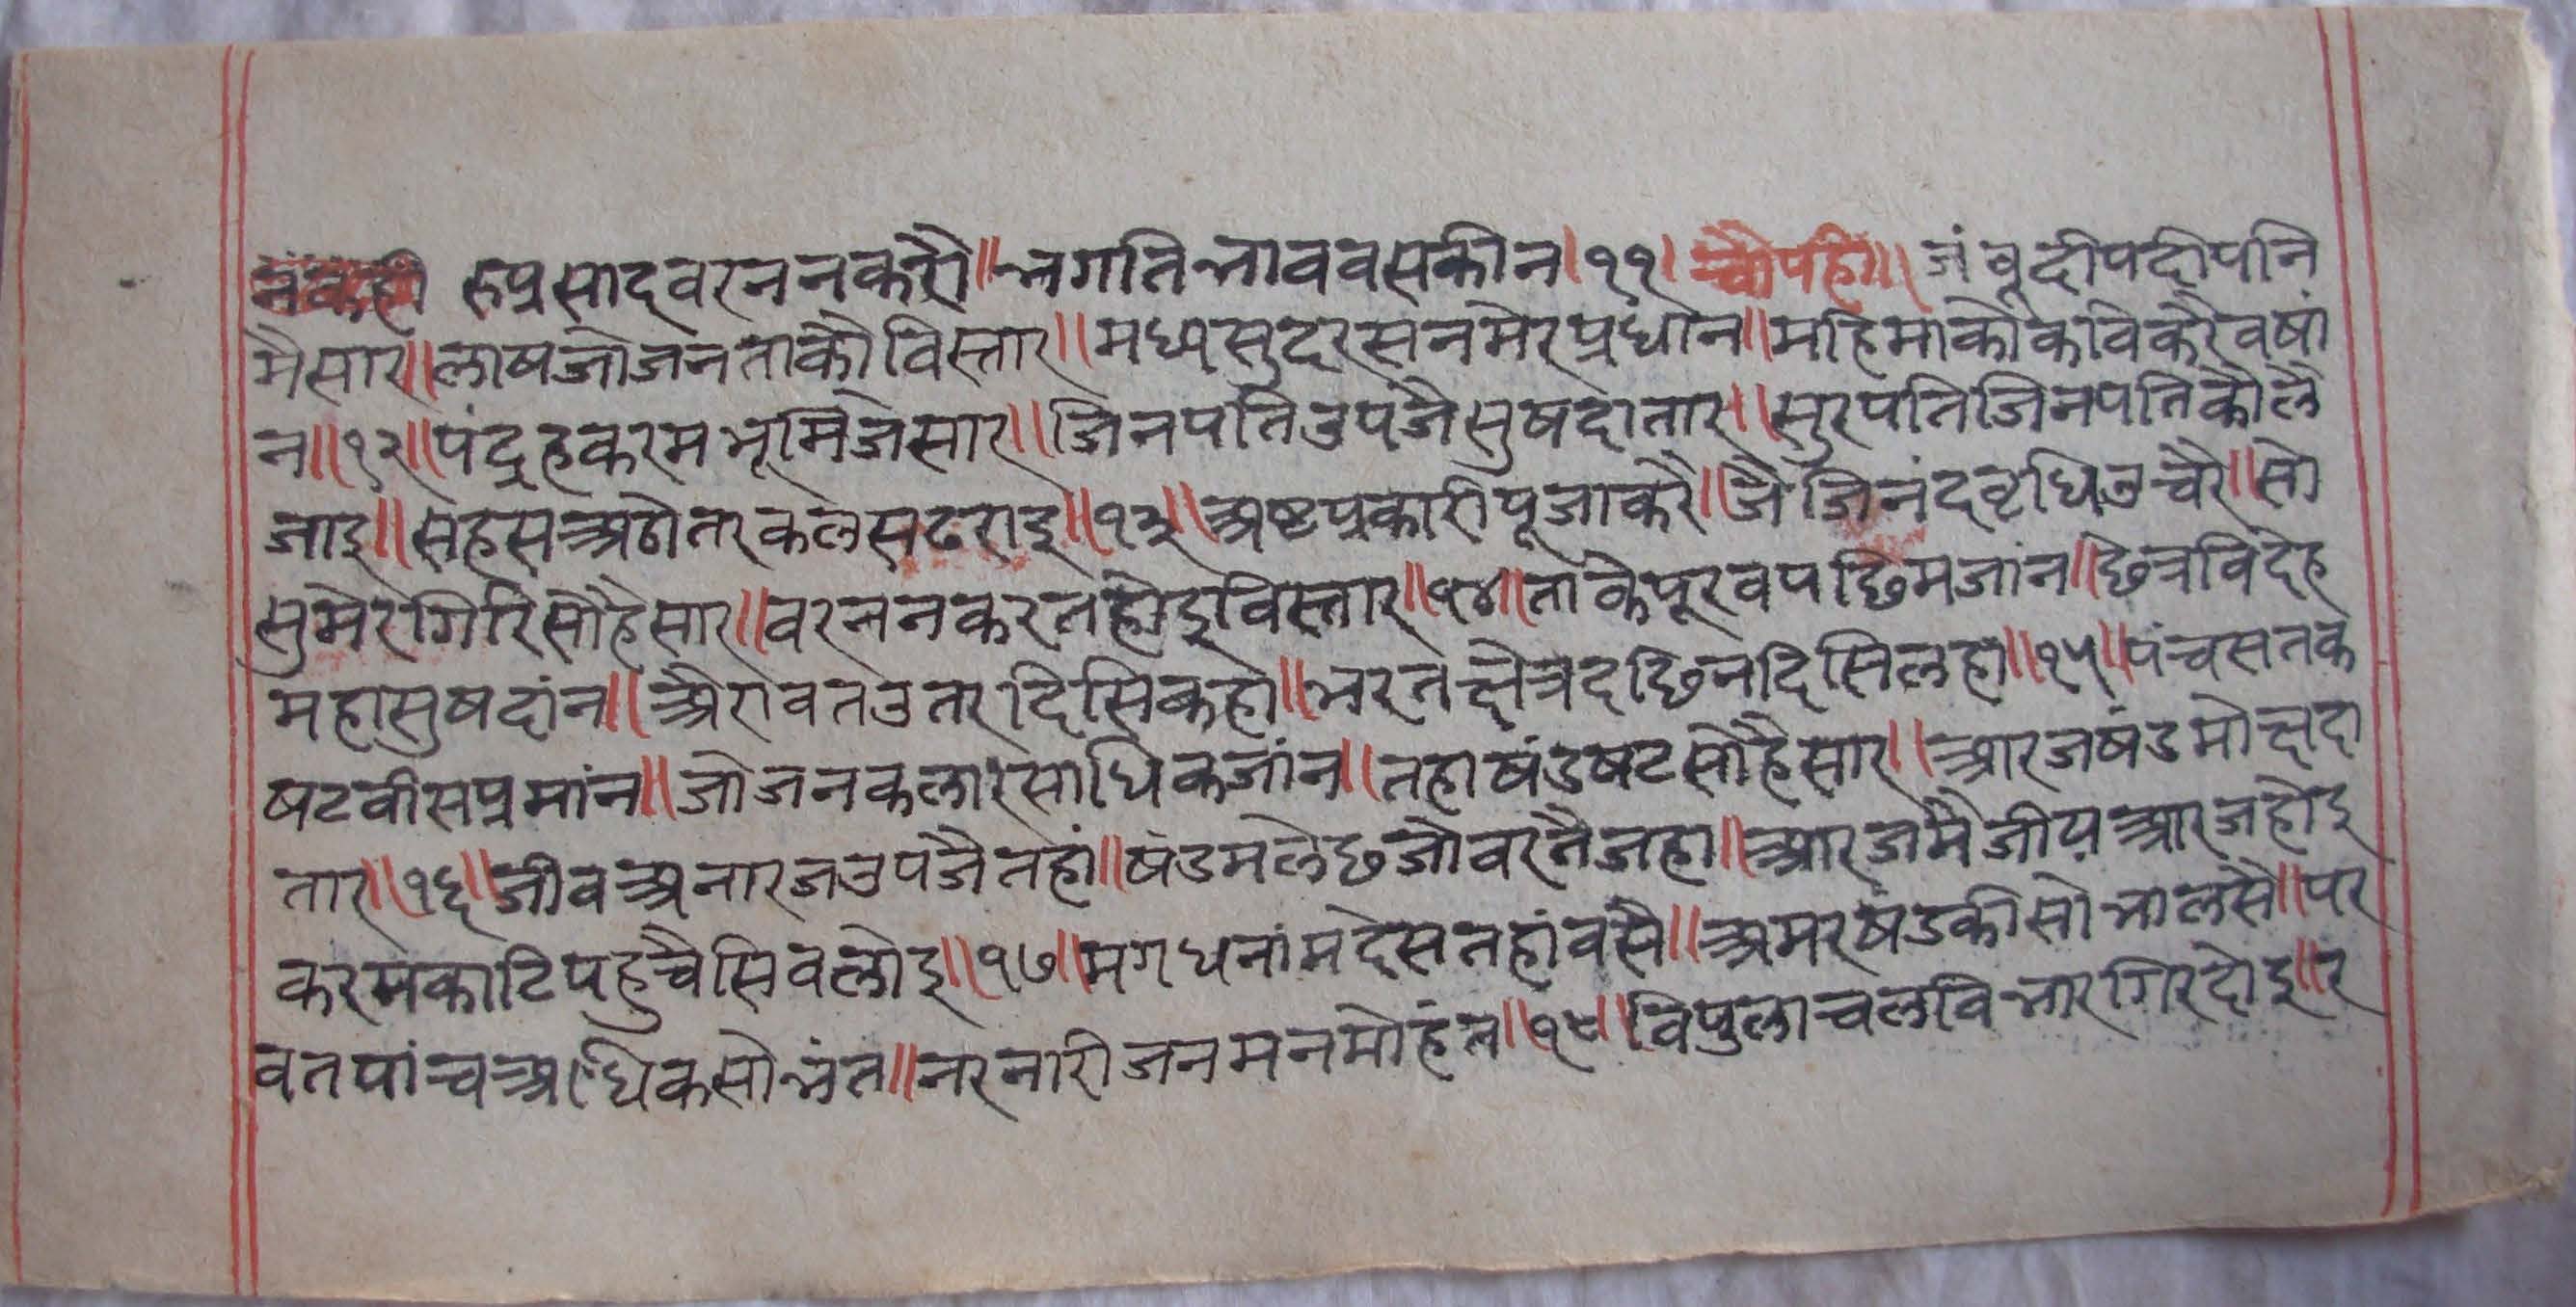 रुप्रसादवरननकरौ॥भगतिभाववसकीन।११। चौपही॥ जंबूदीपदीपनि
मैसार॥लाषजोजनताकौविस्तार॥मध्यसुदरसनमेरप्रधांन॥महिमाकोकविकरैवषां
न॥१२॥पंद्रहकरमभूमिजेसार॥जिनपतिउपजैसुषदातार॥सुरपतिजिनपतिकौले
जाइ॥सहसअठोतरकलसढराइ॥१३॥अष्टप्रकारीपूजाकरै॥जैजिनंदवृधिउचरै॥सो
सुमेरगिरिसोहैसार॥वरननकरतहोइविस्तार॥१४॥ताकेपूरवपछिमजांन॥छेत्रविदेह
महासुषदांन॥अैरावतउतरदिसिकहा॥भरतक्षेत्रदछिनदिसिलहा॥१५॥पंचसतक
षटवीसप्रमांन॥जोजनकलारसाधिकजांन॥तहाषंडषटसोहैसार॥आरजषंडमोक्षदा
तार॥१६॥जीवअनारजउपजैतहां॥षंडमलेछजोवरतैजहा॥आरजमैजीयआरजहोइ
करमकाटिपहुचैसिवलोइ॥१७॥मगधनांमदेसतहांवसै॥अमरषंडकीसोभालसै॥पर
वतपांचअधिकसोभंत॥नरनारीजनमनमोहंत॥१८॥विपुलाचलविभारगिरदोइ॥र